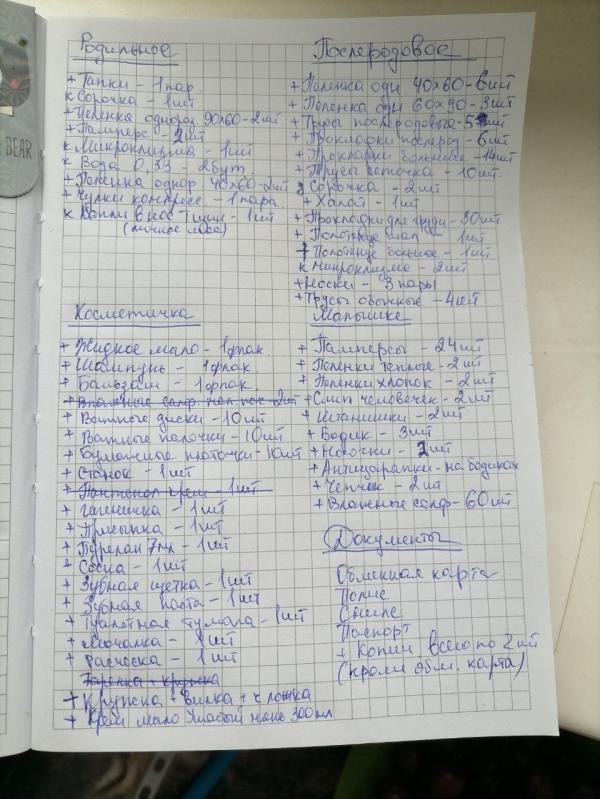 Родильное
+ Тапки - 1 пар.
к Сорочка - 1 шт
+ Пеленка однораз 90х60 - 2 шт
+ Памперс - 2 шт
к Микроклизма - 1 шт
к Вода 0,33 - 2 бут
+ Пеленка однор. 40х60 - 2 шт
+ Чулки компресс - 1 пара.
к Капли в нос - 1 шт
(личное масо)
Послеродовое
+ Пеленка одн 40х60 - 6 шт
+ Пеленка одн 60х90 - 3 шт
+ Трусы послеродовые - 5 шт
+ Прокладки послерод - 6 шт
+ Прокладки большие - 14 шт
+ Трусы сеточка - 10 шт.
Сорочка - 2 шт
+ Халат - 1 шт
+ Прокладки для груди - 30 шт
+ Полотенце мал - 1 шт
+ Полотенце большое - 1 шт
к Микроклизма - 2 шт
+ Носки - 3 пары
+ Трусы обычные - 4 шт
Косметичка
+ Жидкое мыло - 1 флак
+ Шампунь - 1 флак
+ Бальзам - 1 флак.
+ Влажные салф.
+ Ватные диски - 10 шт
+ Ватные палочки - 10 шт
+ Бумажные платочки - 10 шт
+ Станок - 1 шт
+ Пантенол крем - 1 шт
+ Гигиеничка - 1 шт
+ Присыпка - 1 шт
+ Пурелан 7мл - 1 шт
+ Соска - 1 шт
+ Зубная щетка - 1 шт
+ Зубная паста - 1 шт
+ Туалетная бумага - 1 шт
+ Мочалка - 1 шт
+ расческа - 1 шт
Тарелка + кружка
+ Кружка + вилка + ч ложка
+ Крем мыло Ушастый нянь 300 мл
Малышке
+ Памперсы - 24 шт
+ Пеленки теплые - 2 шт
+ Пеленки хлопок - 2 шт
+ Слип человечек - 2 шт
+ Штанишки - 2 шт
+ Бодик - 3 шт
+ Носочки - 2 шт
+ Антицарапки - на бодиках
+ Чепчик - 2 шт
+ Влажные салф - 60 шт
Документы
Обменная карта
Полис
Снилс
Паспорт
+ Копии всего по 2 шт
(кроме обм. карта)
BEAR